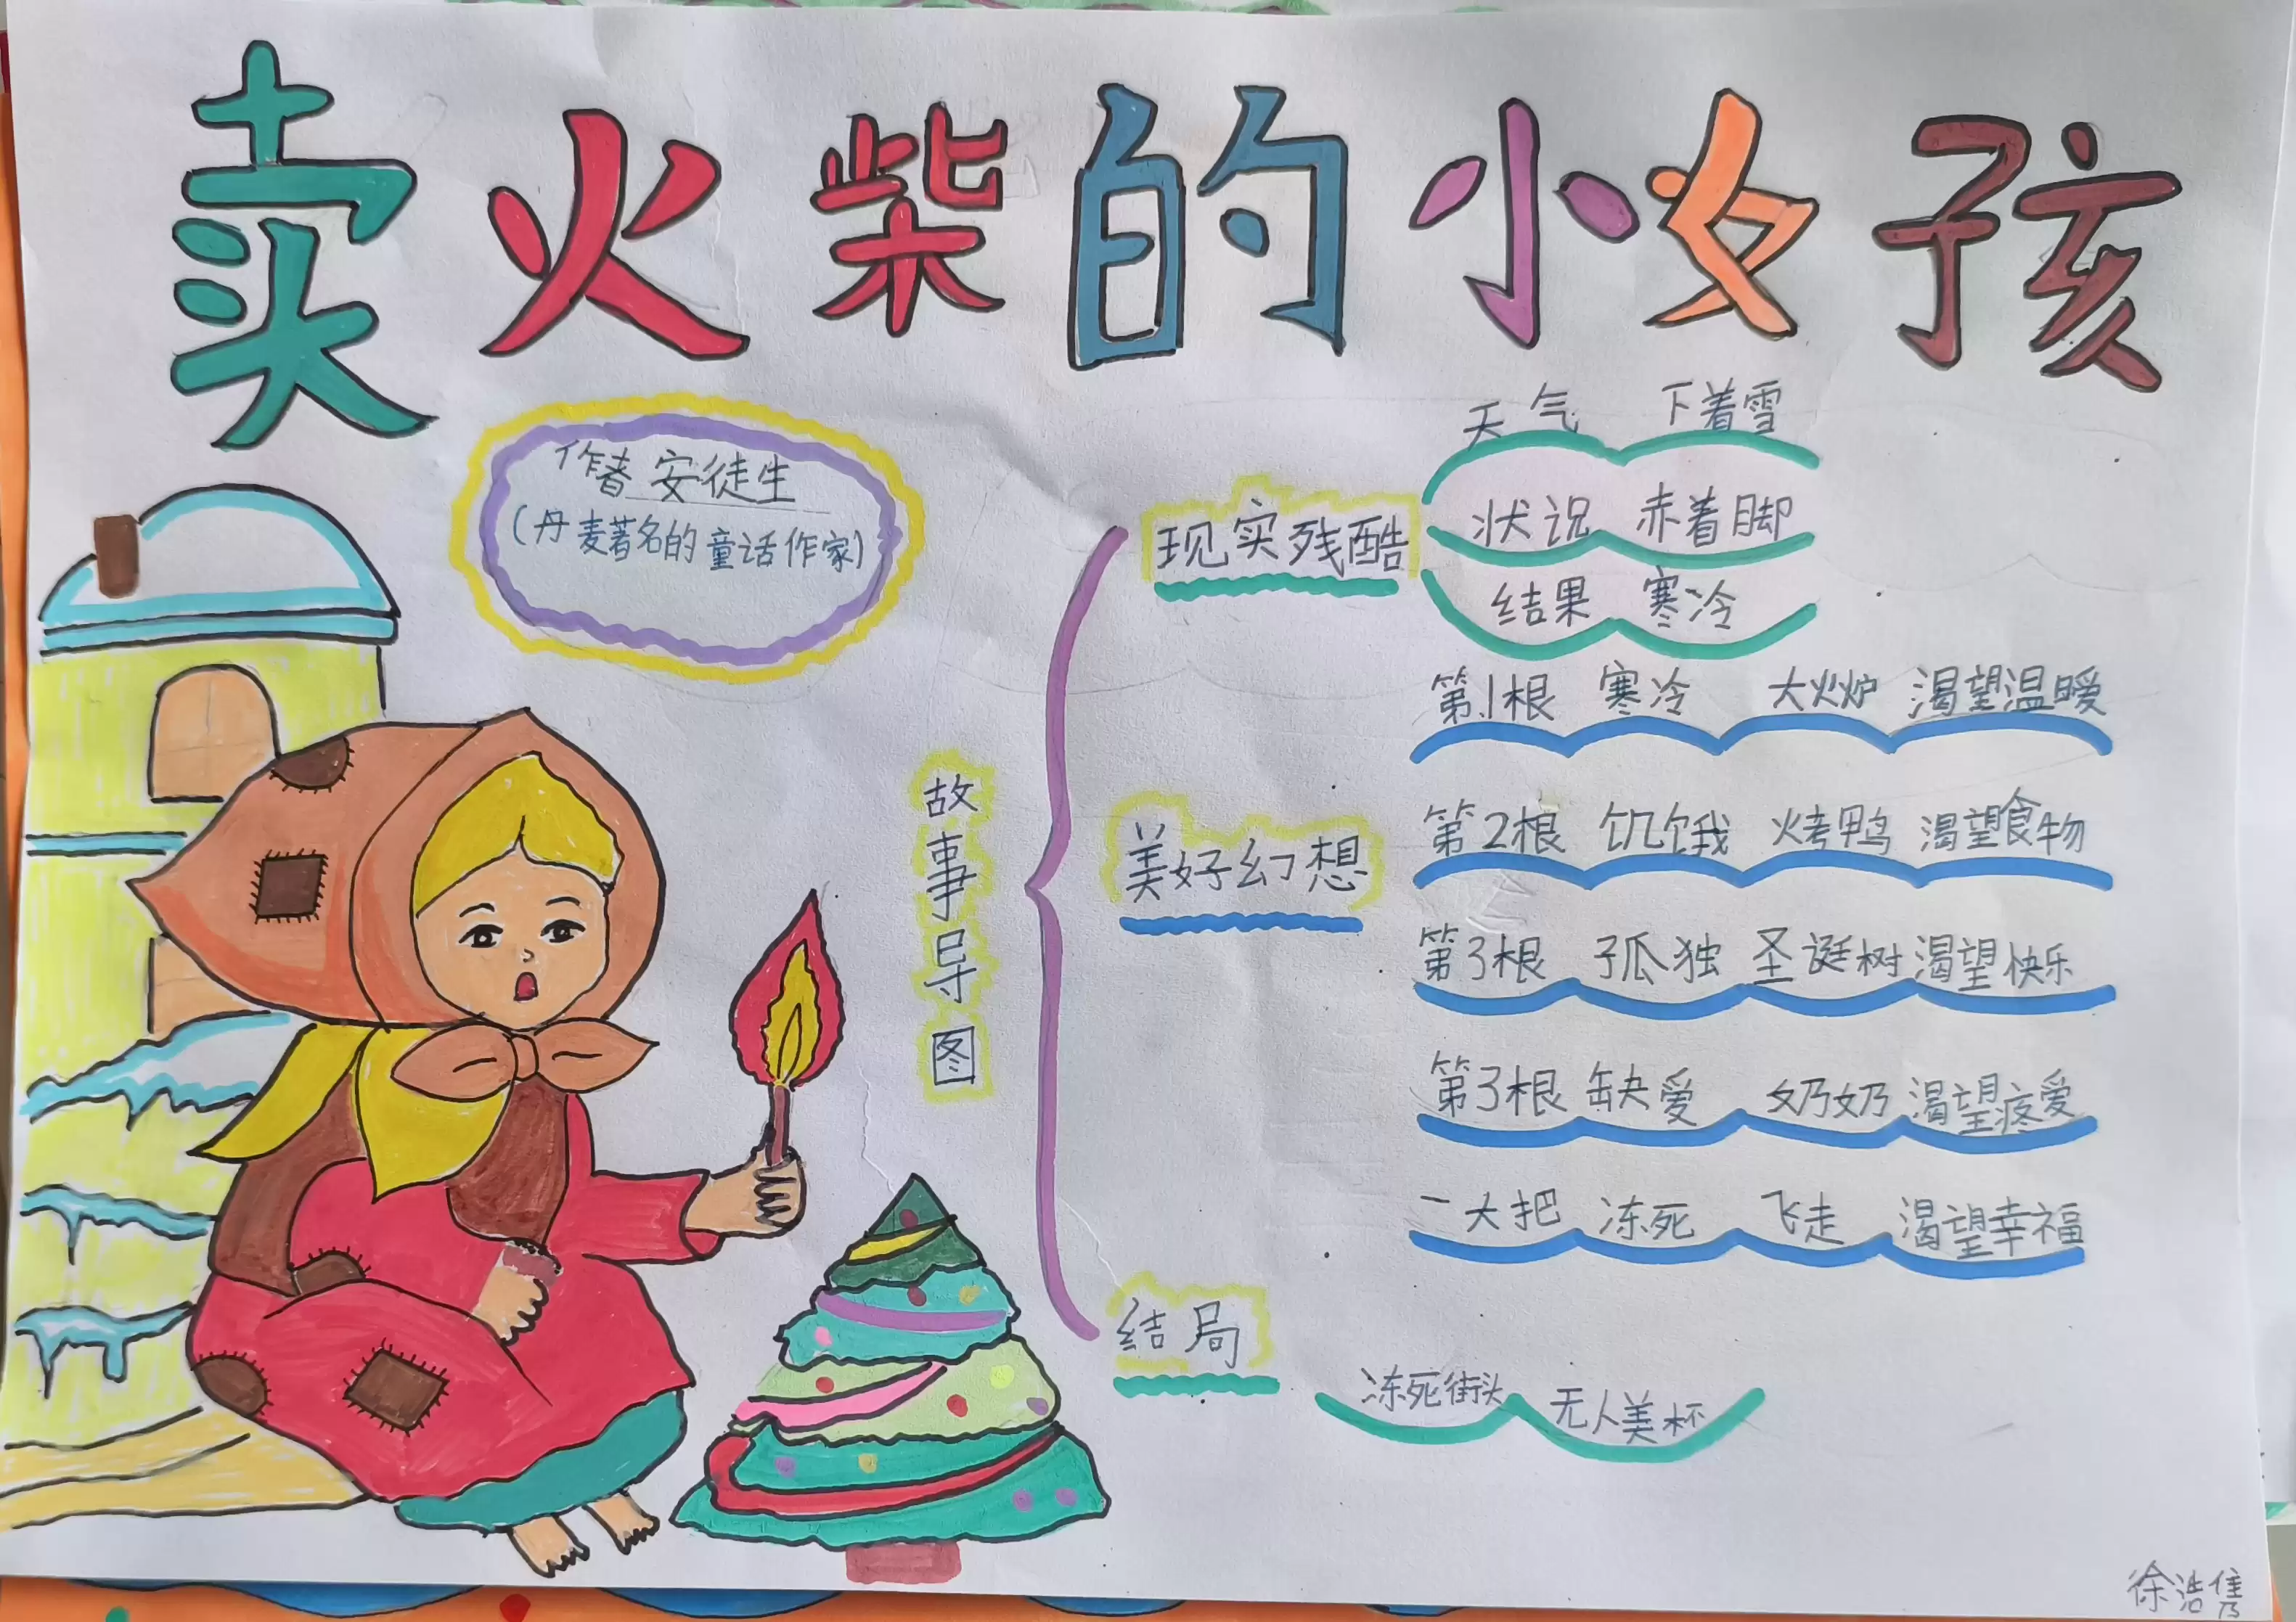 卖火柴的小女孩
作者 安徒生
(丹麦著名的童话作家)
故事导图
现实残酷
天气 下着雪
状况 赤着脚
结果 寒冷
美好幻想
第1根 寒冷 大火炉 渴望温暖
第2根 饥饿 烤鸭 渴望食物
第3根 孤独 圣诞树 渴望快乐
第3根 缺爱 奶奶 渴望疼爱
一大把 冻死 飞走 渴望幸福
结局
冻死街头 无人美杯
徐浩隽